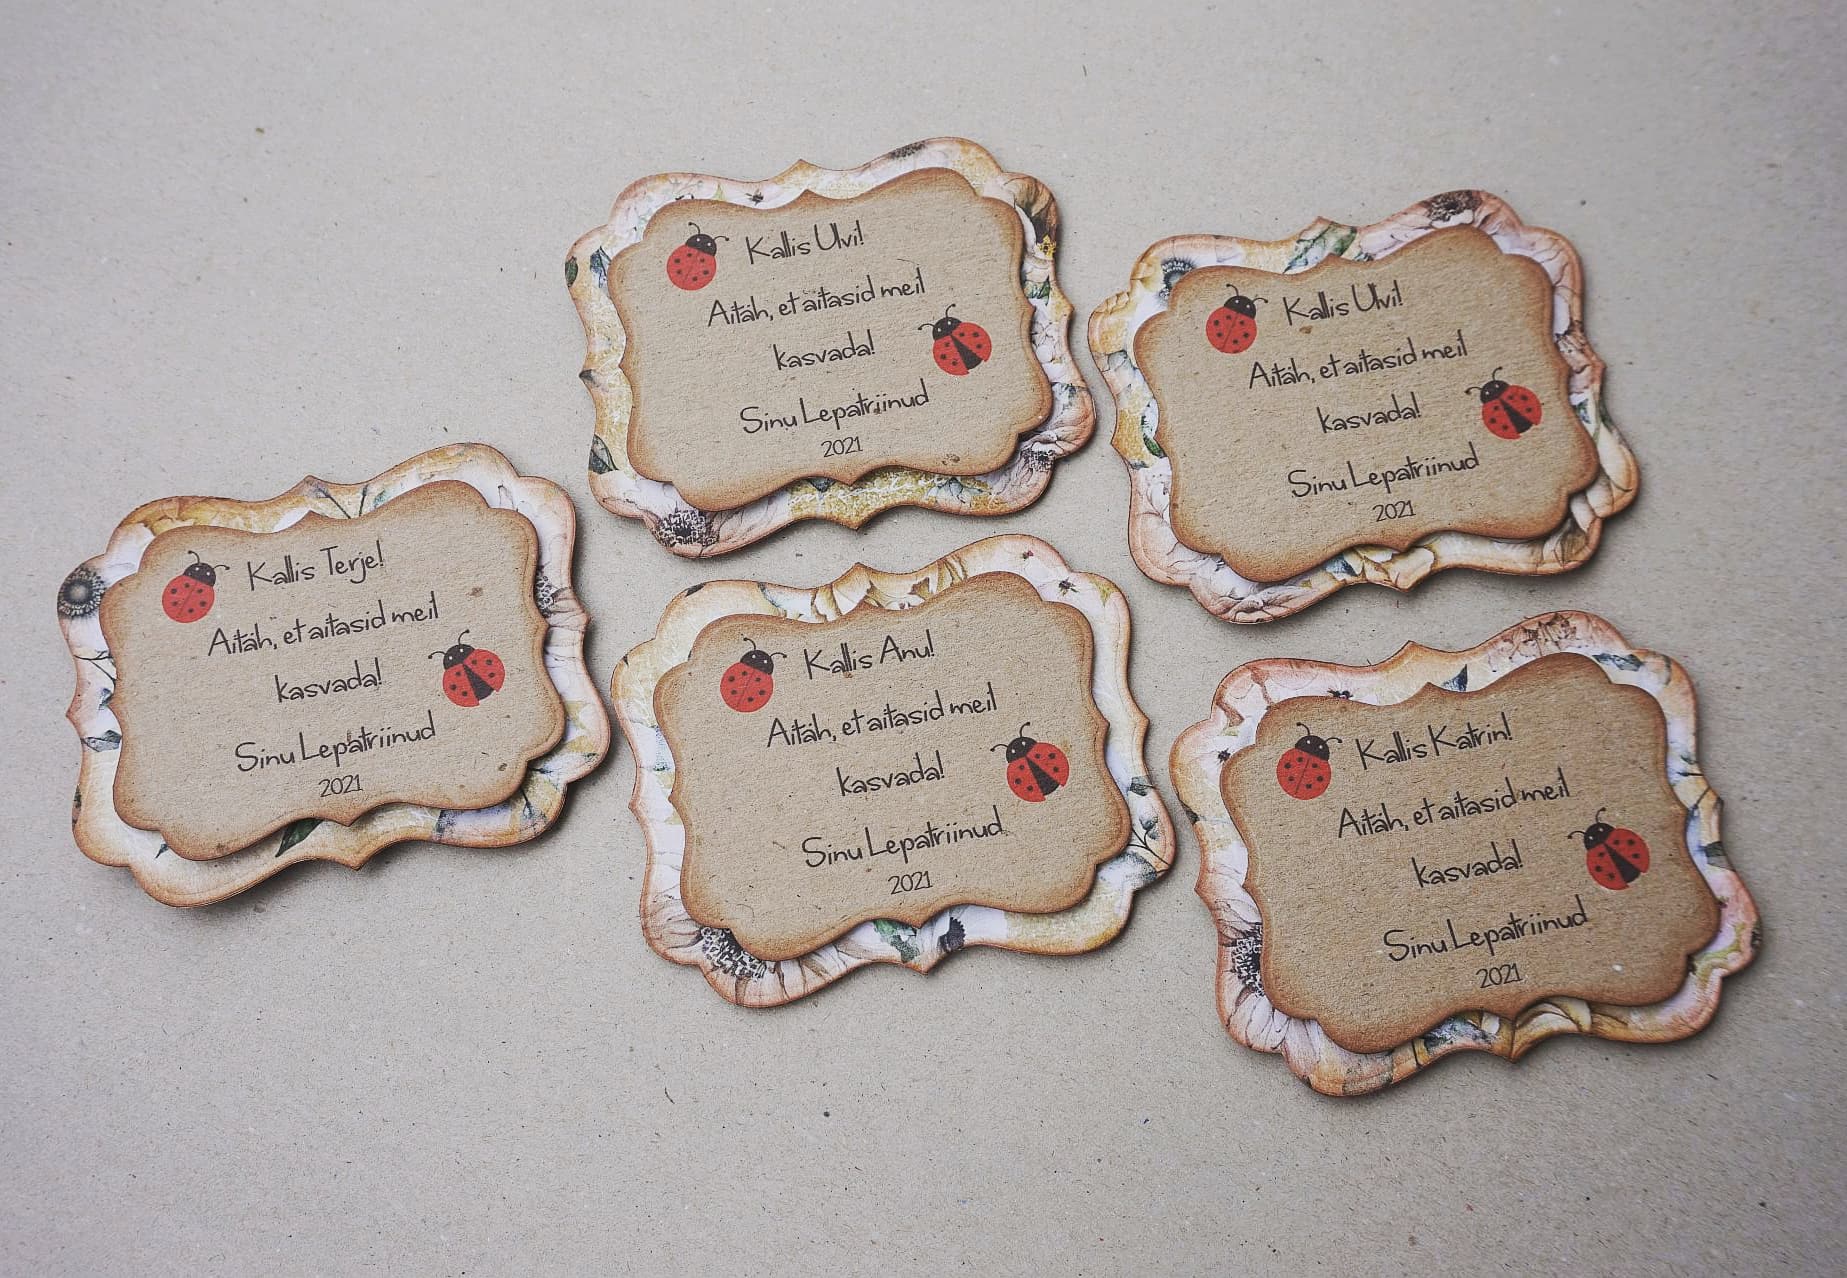 Kallis Ulvi!
Aitäh, et aitasid meil
kasvada!
Sinu Lepatriinud
2021
Kallis Ulvi!
Aitäh, et aitasid meil
kasvada!
Sinu Lepatriinud
2021
Kallis Terje!
Aitäh, et aitasid meil
kasvada!
Sinu Lepatriinud
2021
Kallis Anu!
Aitäh, et aitasid meil
kasvada!
Sinu Lepatriinud
2021
Kallis Katrin!
Aitäh, et aitasid meil
kasvada!
Sinu Lepatriinud
2021